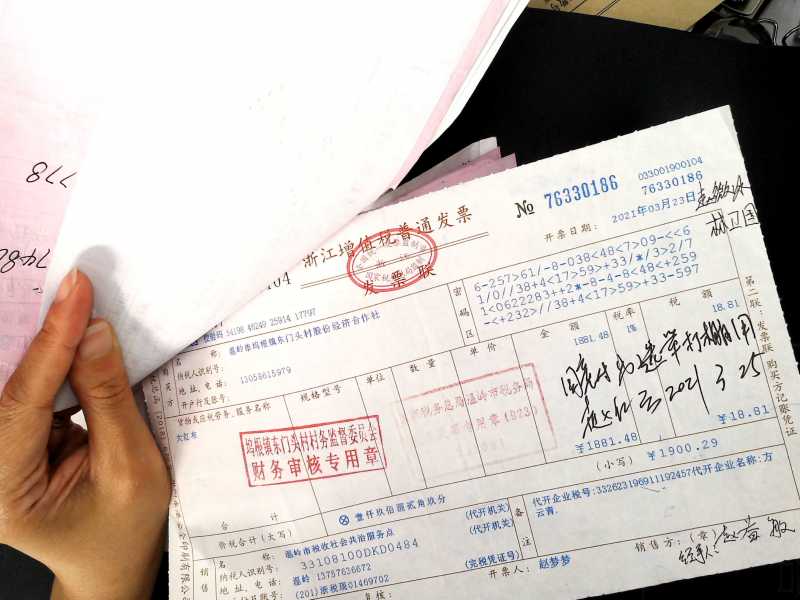 778
浙江增值税普通发票
发票联
№ 76330186
033001900104
76330186
开票日期: 2021年03月23日
104
校验码 54198 46249 25914 17797
名称: 温岭市坞根镇东门头村股份经济合作社
纳税人识别号:
地址、电话: 13058615979
开户行及账号:
密码区
6-257>61/-8-038<48<7>09-<<6
1/0//38+4<17>59>+33/*/3>2/7
1<0622283++2*-8-4-8<48<+259
-<+232>//38+4<17>59>+33-597
货物或应税劳务、服务名称 规格型号 单位 数量 单价 金额 税率 税额
大红布 1881.48 1% 18.81
2021 3 25
坞根镇东门头村村务监督委员会
财务审核专用章
合计 ¥1881.48 ¥18.81
价税合计(大写) ⊗ 壹仟玖佰圆贰角玖分 (小写) ¥1900.29
名称: 温岭市税收社会共治服务点 (代开机关)
纳税人识别号: 33108100DKD0484 (代开机关)
地址、电话: 温岭 13757636672
(201)浙税现01469702 (完税凭证号)
备注
代开企业税号:332623196911192457代开企业名称:方
云青.
复核: 开票人: 赵梦梦 销售方:(章)
第二联:发票联 购买方记账凭证